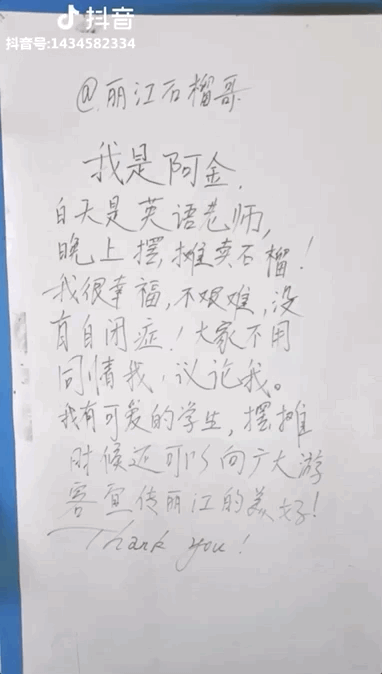 抖音
抖音号:1434582334
@丽江石榴哥
我是阿金,
白天是英语老师,
晚上摆,摊卖石榴!
我很幸福,不艰难,没
有自闭症!大家不用
同情我,议论我。
我有可爱的学生,摆摊
时候还可以向广大游
客宣传丽江的美好!
Thank you!